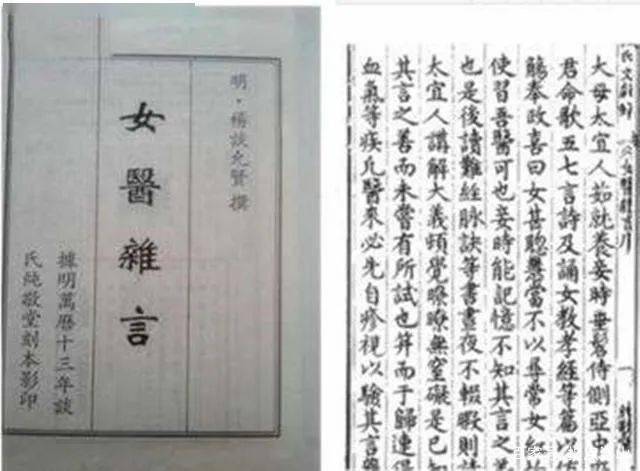 明·楊談允賢 撰
女醫雜言
據明萬曆十三年談
氏純敬堂刻本影印
大母太宜人茹就養妾時垂髫侍側亞中
君命歌五七言詩及誦女教孝經等篇以
觴奉政喜曰女甚聰慧當不以尋常女
使習吾醫可也妾時能記憶不知其言之
也是後讀難經脉訣等書晝夜不輟暇則
太宜人講解大義頻覺瞭瞭無窒礙是已知
其言之善而未嘗有所試也笄而于歸連得
血氣等疾凡醫來必先自疹視以驗其言